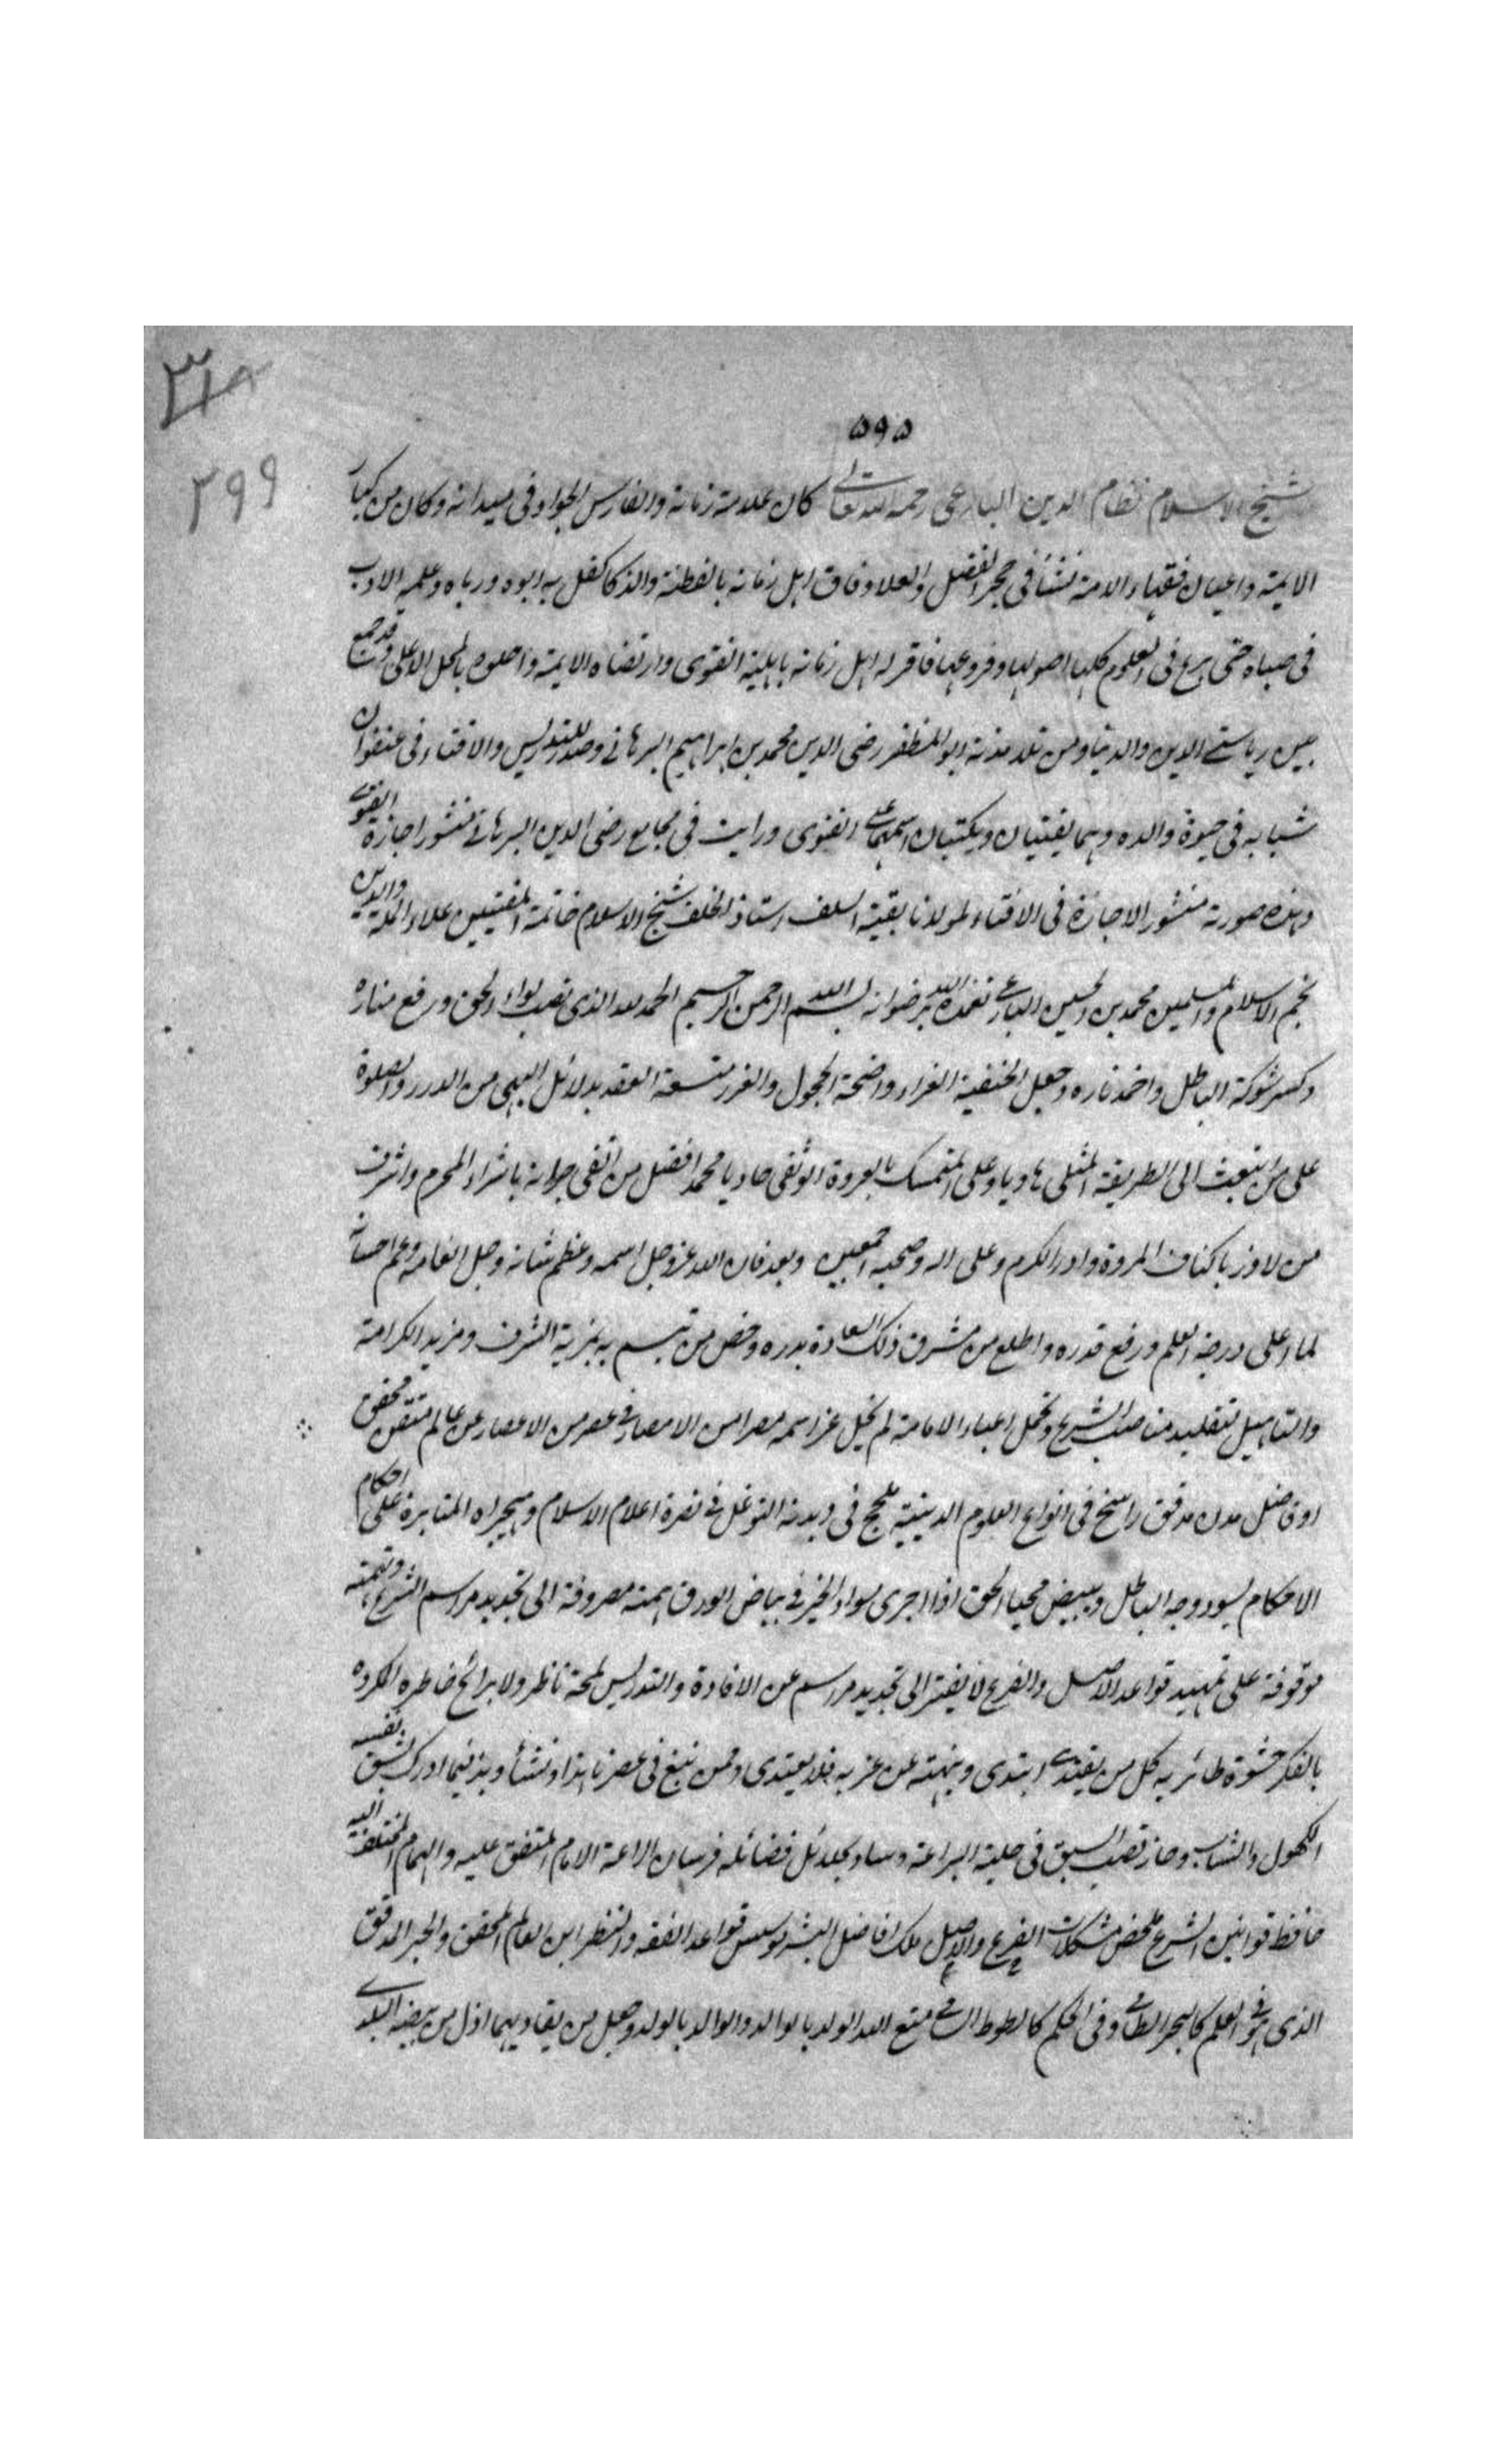 ٣١٨
٥٩٥
٢٩٩
شيخ الاسلام نظام الدين البارعى رحمه الله تعالى كان علامة زمانه والفارس الجواد فى ميدانه وكان من كبار
الايمة واعيان فقهاء الامة نشأ فى حجر الفضل والعلا وفاق اهل زمانه بالفطنة والذكا كفل به ابوه ورباه وعلمه الادب
فى صباه حتى برع فى العلوم كلها اصولها وفروعها فاقر له اهل زمانه باهلية الفتوى وارتضاه الايمة واحلوه بالمحل الاعلى قد جمع
بين رياستى الدين والدنيا ومن تلامذته ابو المظفر رضى الدين محمد بن ابراهيم البرهانى وصدر للتدريس والافتاء فى عنفوان
شبابه فى حيوة والده وهما يفتيان ويكتبان اسمهما على الفتوى ورايت فى مجاميع رضى الدين البرهانى منشور اجازة الفتوى
وهذه صورته منشور الاجازة فى الافتاء لمولانا بقية السلف استاذ الخلف شيخ الاسلام خاتمة المفتيين علاء الملة والدين
نجم الاسلام والمسلمين محمد بن الحسين البارعى تغمده الله برضوانه بسم الله الرحمن الرحيم الحمد لله الذى نصب لواء الحق ورفع مناره
وكسر شوكة الباطل واخمد ناره وجعل الحنفية الغراء واضحة الحجول والغرر متسعة العقد بدلائل البهى من الدرر والصلوة
على من انبعث الى الطريقة المثلى هاديا وعلى المتمسك بالعروة الوثقى حاديا محمد افضل من اتقى باشراء المحرم واشرف
من لاوذ باكناف المروة واذر الكرم وعلى اله وصحبه اجمعين وبعد فان الله عز وجل اسمه وعظم شانه وجل انعامه وعم احسانه
لما اعلى درجة العلم ورفع قدره واطلع من مشرق ذلك السعادة بدره وخص من تبسم به بمزية الشرف ومزيد الكرامة
والتاهيل لتقليد مناصب الشرع وتحمل اعباء الامامة لم يخل عز اسمه مصرا من الامصار فى عصر من الاعصار عن عالم متقن محقق
او فاضل مدقق راسخ فى انواع العلوم الدينية التوغل فى نصرة اعلام الاسلام وهجيراه المثابرة على احكام
الاحكام يسود وجه الباطل ويبيض محيا الحق اذا اجرى سواد الحبر فى بياض الورق همته مصروفة الى تجديد مراسم الشرع ونهمته
موقوفة على تمهيد قواعد الاصل والفرع لا يفتر الى تجديد مراسم عن الافادة والتدريس لمحة ناظر ولا برائح خاطره المكروه
بالفكر طائر به كل من يقتدى اهتدى وينهته عن غربه فلا يعتدى وممن نبغ فى عصرنا هذا ونشأ وبذ فيما ادرك بنفسه
الكهول والشاب وحاز قصب السبق فى حلبة البراعة وساد بجلائل فضائله فرسان البراعة الامام المتفق عليه والهمام المختلف اليه
حافظ قوانين الشرع ملخص مشكلات الفرع والاصل ملك افاضل البشر مؤسس قواعد الفقه والنظر ابن العالم المحقق والحبر المدقق
الذى هو فى العلم كالبحر الطامى وفى الحكم كالطود السامى متع الله الولد بالوالد والوالد بالولد وجعل من يعاديهما اذل من بيضة البلد